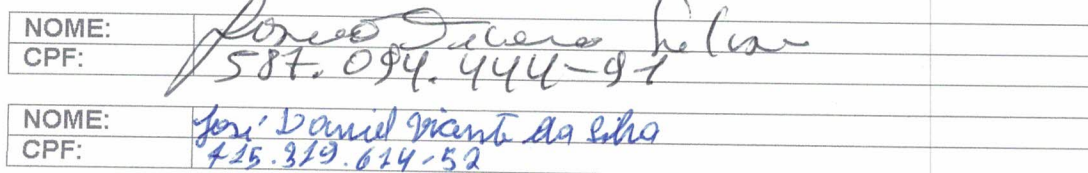 NOME:
CPF: 587.094.444-91
NOME: José Daniel Vicente da Silva
CPF: 415.319.614-52